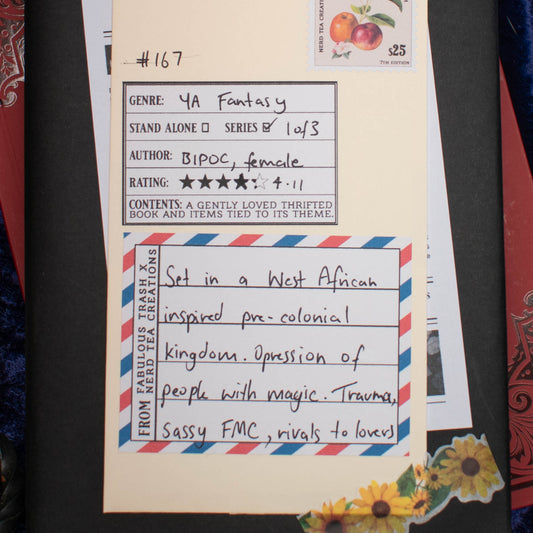 NERD TEA CREATIONS
$25
7TH EDITION
#167
GENRE: YA Fantasy
STAND ALONE ☐ SERIES ☑ 1 of 3
AUTHOR: BIPOC, female
RATING: ★★★★☆ 4.11
CONTENTS: A GENTLY LOVED THRIFTED
BOOK AND ITEMS TIED TO ITS THEME.
FROM FABULOUS TRASH X
NERD TEA CREATIONS
Set in a West African
inspired pre-colonial
kingdom. Opression of
people with magic. Trauma,
sassy FMC, rivals to lovers